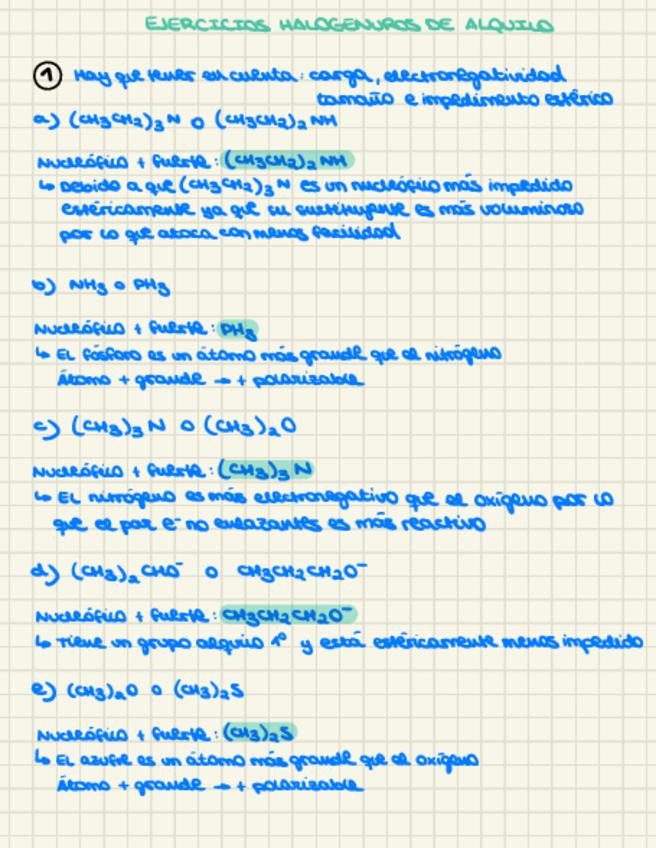 EJERCICIOS HALOGENUROS DE ALQUILO
① Hay que tener en cuenta: carga, electronegatividad
tamaño e impedimento estérico
a) (CH3CH2)3N o (CH3CH2)2NH
Nucleófilo + fuerte: (CH3CH2)2NH
↳ Debido a que (CH3CH2)3N es un nucleófilo más impedido
estéricamente ya que su sustituyente es más voluminoso
por lo que ataca con menos facilidad
b) NH3 o PH3
Nucleófilo + fuerte: PH3
↳ El fósforo es un átomo más grande que el nitrógeno
Átomo + grande → + polarizable
c) (CH3)3N o (CH3)2O
Nucleófilo + fuerte: (CH3)3N
↳ El nitrógeno es más electronegativo que el oxígeno por lo
que el par e⁻ no enlazantes es más reactivo
d) (CH3)2CHO⁻ o CH3CH2CH2O⁻
Nucleófilo + fuerte: CH3CH2CH2O⁻
↳ Tiene un grupo alquilo 1º y está estéricamente menos impedido
e) (CH3)2O o (CH3)2S
Nucleófilo + fuerte: (CH3)2S
↳ El azufre es un átomo más grande que el oxígeno
Átomo + grande → + polarizable